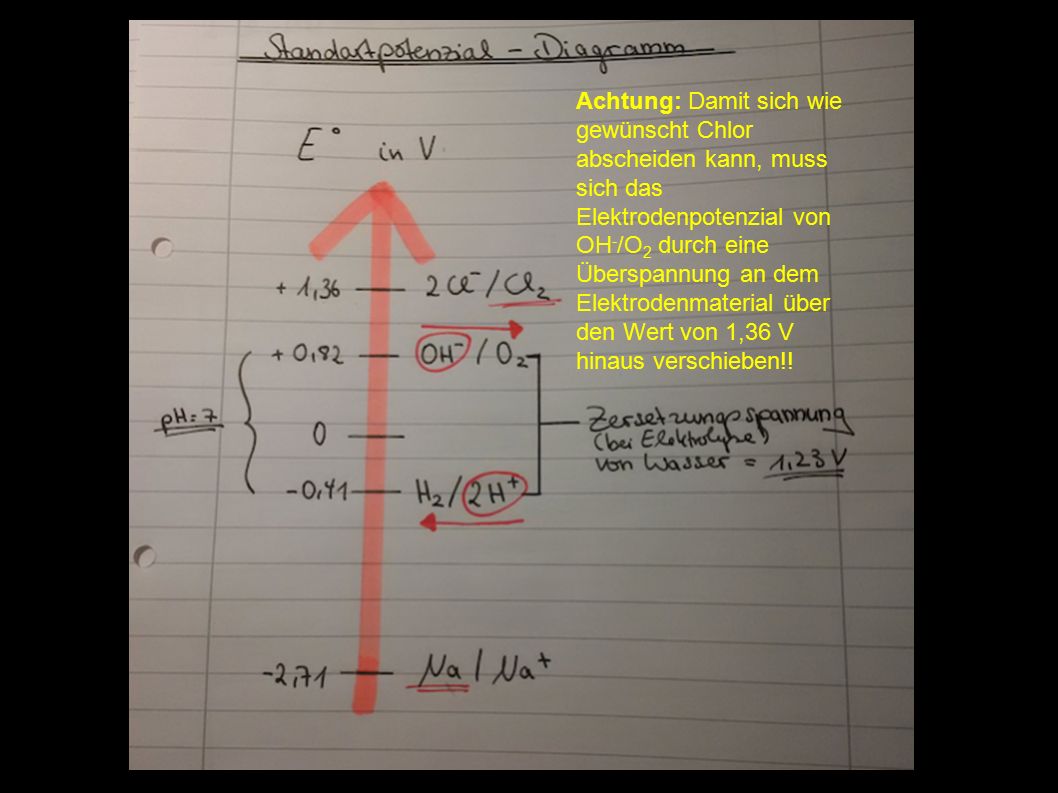 Standartpotenzial - Diagramm
Achtung: Damit sich wie
gewünscht Chlor
abscheiden kann, muss
sich das
Elektrodenpotenzial von
OH-/O2 durch eine
Überspannung an dem
Elektrodenmaterial über
den Wert von 1,36 V
hinaus verschieben!!
E° in V
+ 1,36 2Cl⁻/Cl₂
+ 0,82 OH⁻ / O₂
pH=7
0
Zersetzungsspannung
(bei Elektrolyse)
von Wasser = 1,23 V
-0,41 H₂/2H⁺
-2,71 Na / Na⁺